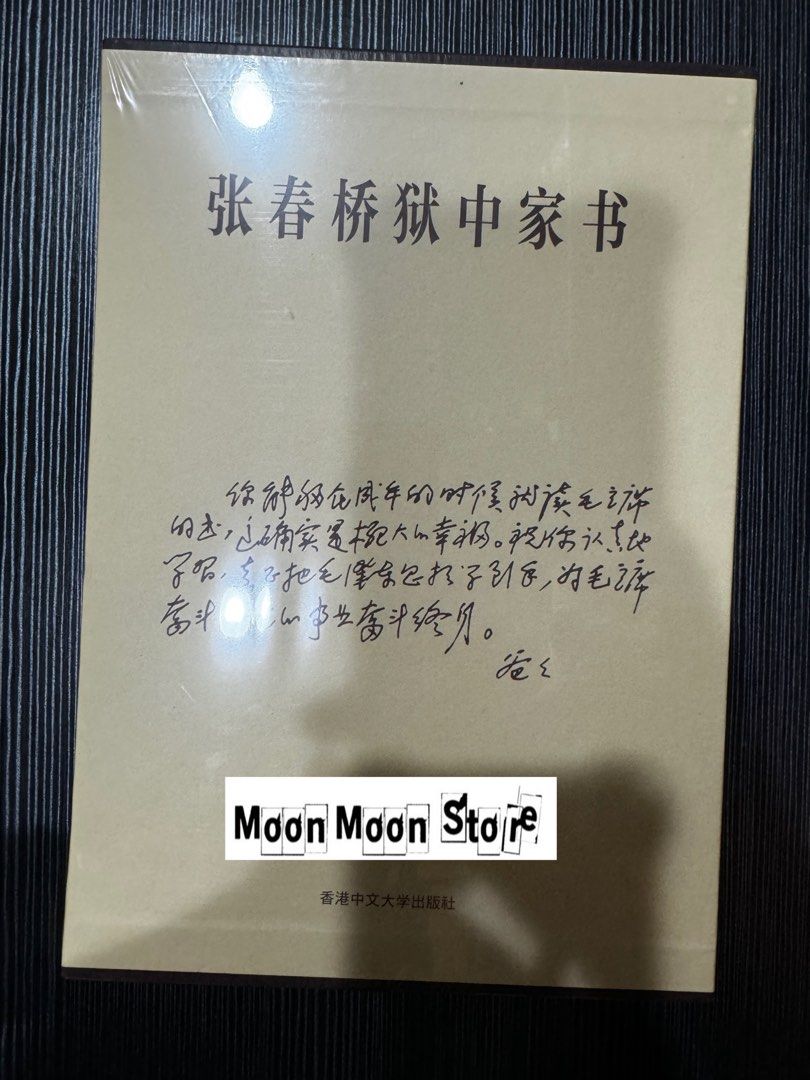 张春桥狱中家书
你能够在成年的时候就读毛主席
的书，这确实是极大的幸福。祝你认真地
学习，真正把毛泽东思想学到手，为毛主席
奋斗的事业奋斗终身。
爸爸
Moon Moon Store
香港中文大学出版社